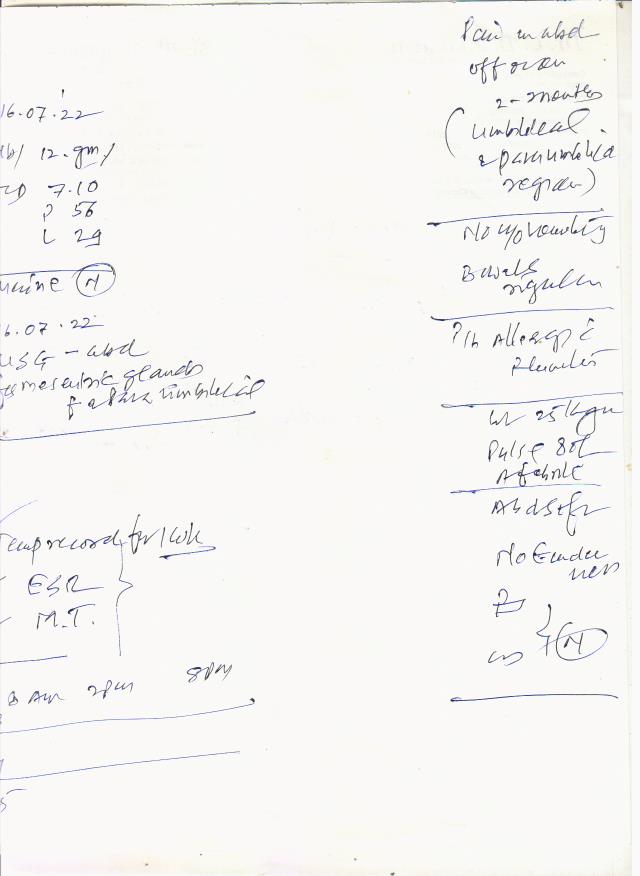 16.07.22
Hb/ 12.gm/
TLC 7.10
P 56
L 29
urine (N)
16.07.22
USG - abd
mesenteric glands
paraumbilical
Temp record for 1 wk
ESR
M.T.
8 Am 2pm 8pm
Pain in abd
off & on
2-months
(umbilical
& paraumbilical
region)
No c/o vomiting
Bowels
regular
P/h Allergic
Rhinitis
Wt 25 kgm
Pulse 80
Afebrile
Abd soft
No tender
ness
(N)